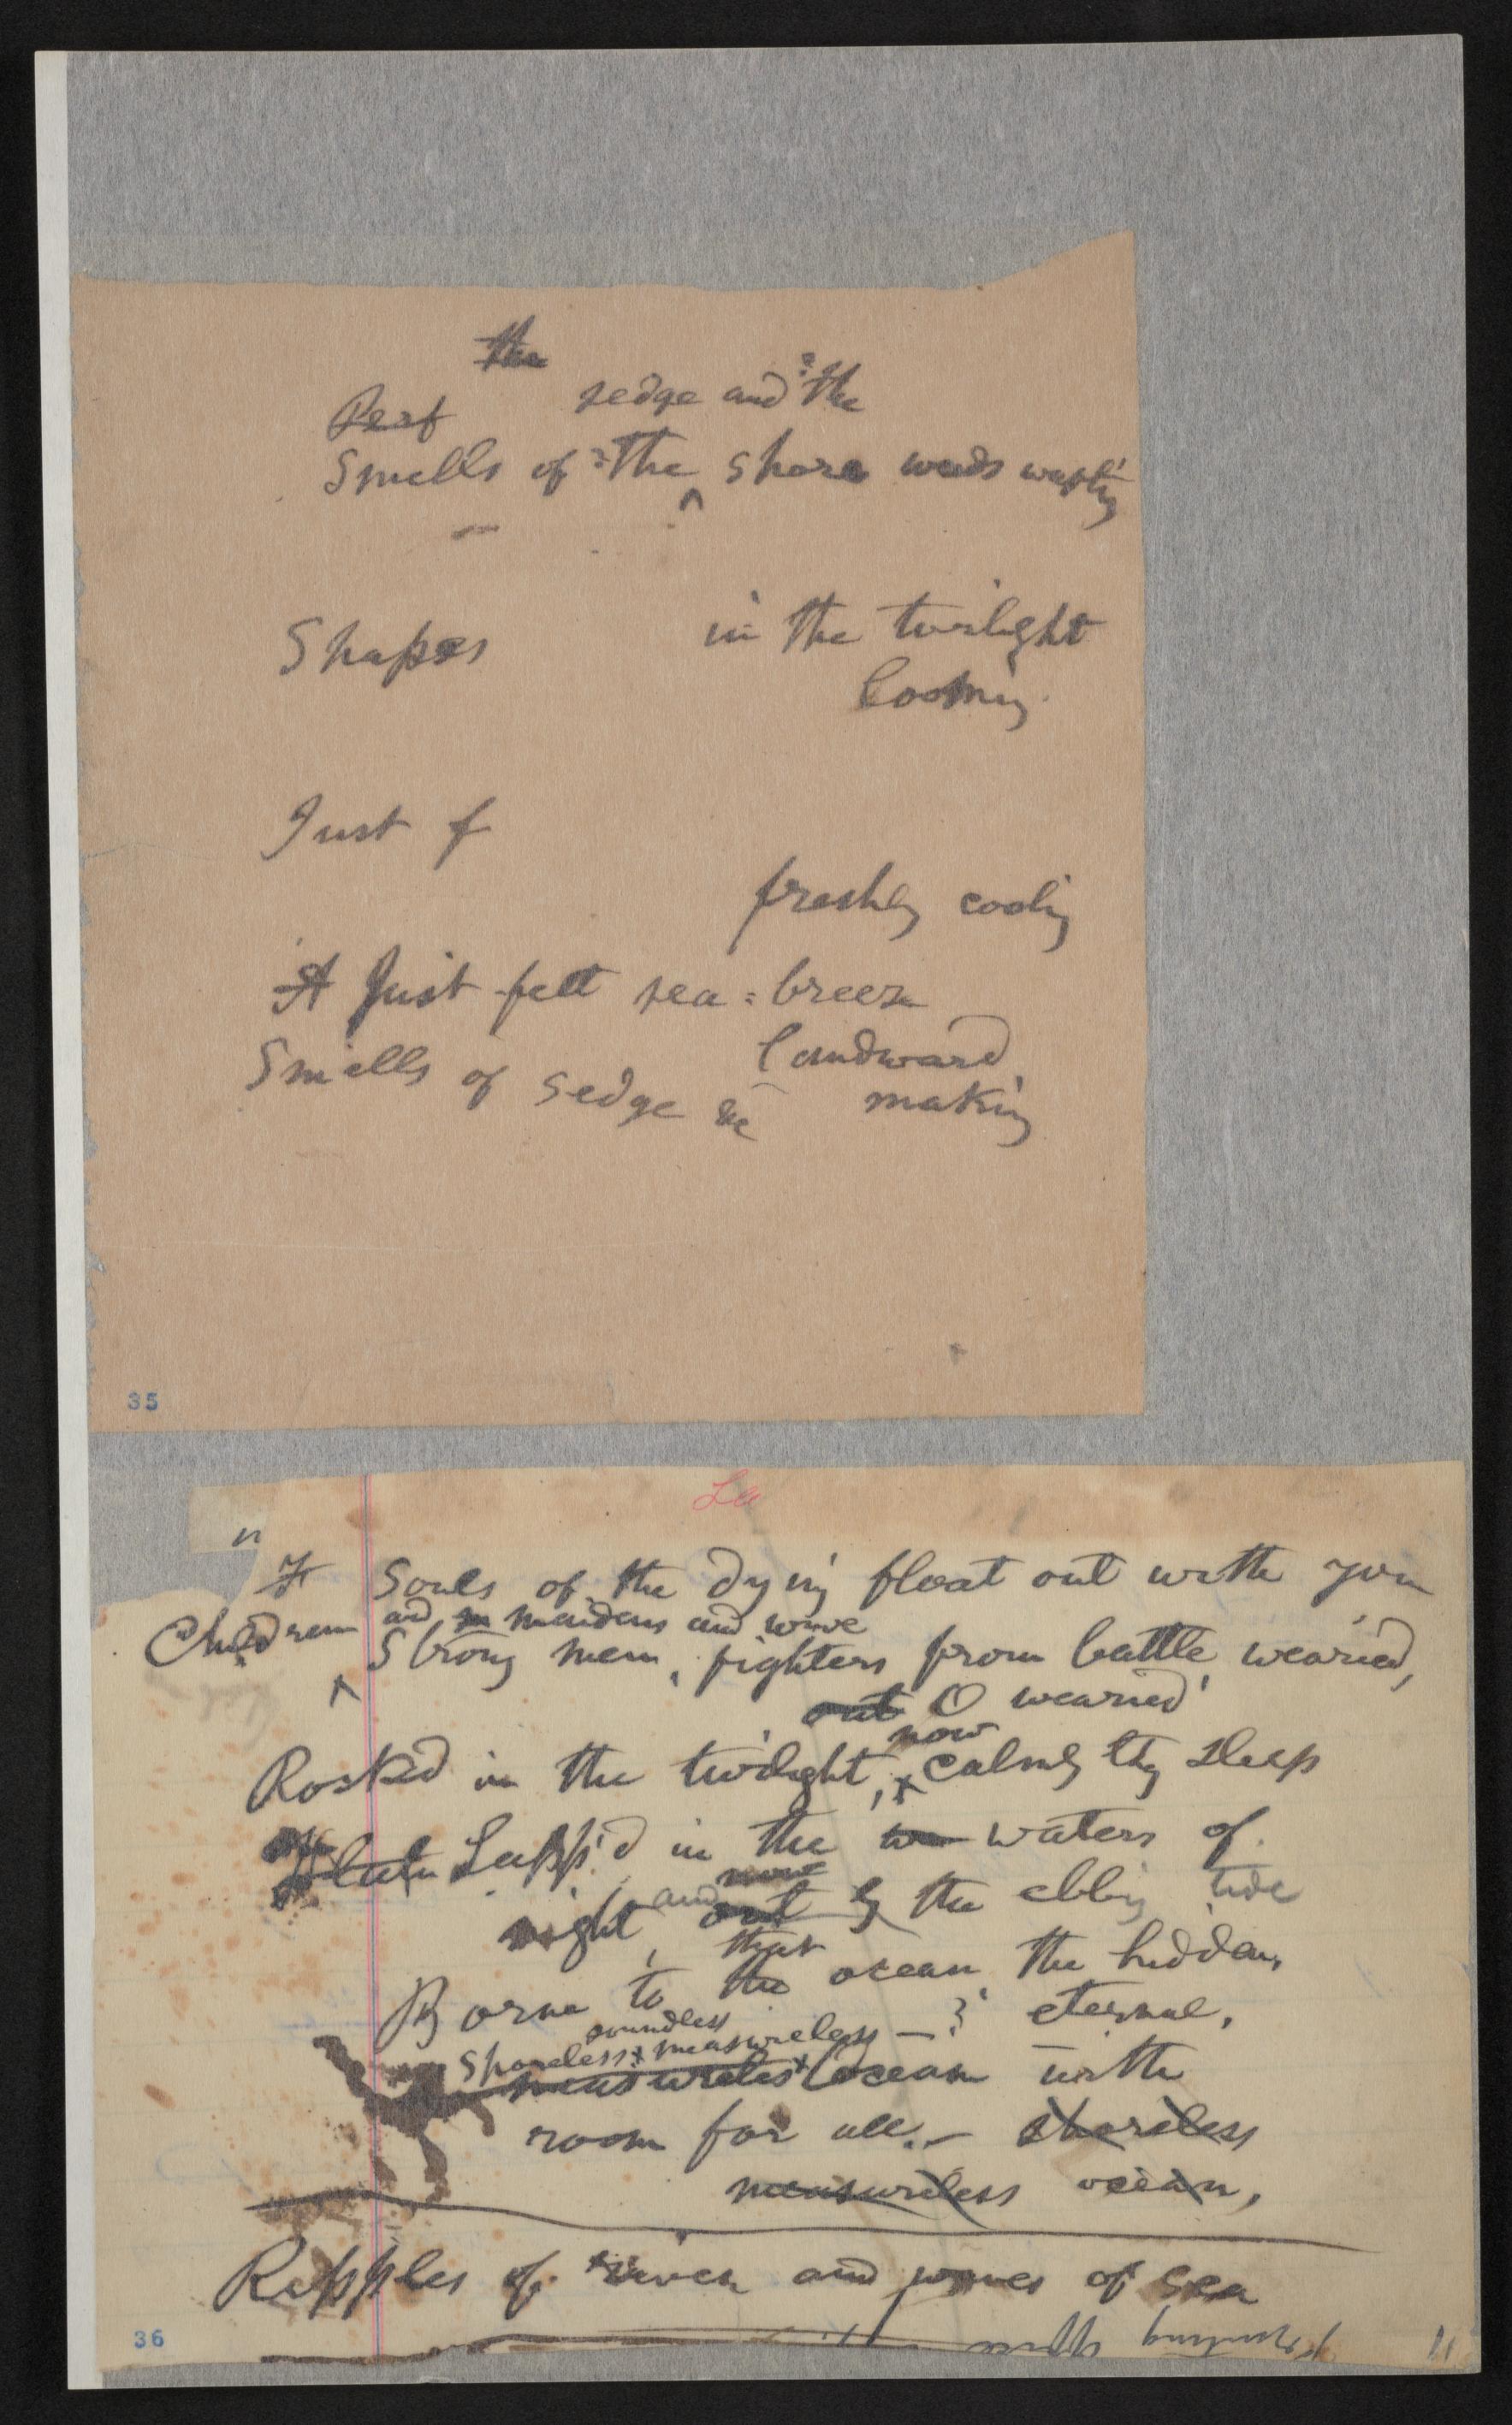 the
Perf
sedge and the
Smells of the shore weeds wafting
Shapes
in the twilight
looming
Just f
freshly cooling
A Just felt sea-breeze
landward
Smells of sedge &c
making
35
La
If Souls of the dying float out with you
Children and m maidens and
Strong men, fighters from battle wearied,
out O wearied
now
Rock'd in the twilight, calmly thy sleep
Lapp'd in the wa waters of
now
night and out by the ebbing tide
that
Borne to the ocean the hidden,
soundless eternal,
shoreless + measureless
measureless ocean with
room for all. — shoreless
measureless ocean,
Ripples of river and waves of sea
36